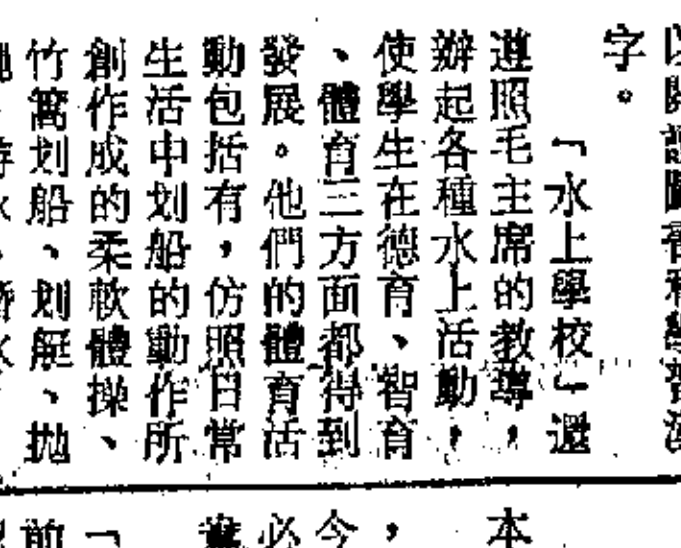 字。
「水上學校」還
遵照毛主席的教導，
辦起各種水上活動，
使學生在德育、智育
、體育三方面都得到
發展。他們的體育活
動包括有，仿照日常
生活中划船的動作所
創作成的柔軟體操、
竹篙划船、划艇、拋
本
，
今
必
前
「